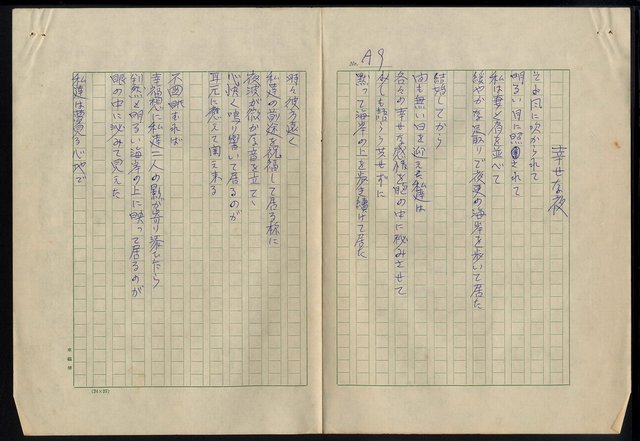 No. A9
幸せな夜
そよ風に吹かられて
明るい月に照されて
私は妻と肩を並べて
緩やかな足取りで夜更の海岸を歩いて居た
結婚してから
間も無い日を迎えた私達は
各々の幸せな感情を胸の中に秘みさせて
少しも語らう共せずに
黙って海岸の上を歩き續けて居た
時々彼方遠く
私達の前途を祝福して居る様に
夜波が微かな音を立てゝ
心快く鳴り響いて居るのが
耳元に慧えて聞え来る
不図眺むれば
幸福想に私達二人の影が寄り添乍ら
判然と明るい海岸の上に映って居るのが
眼の中に沁みて見えた
私達は夢見る心地で
原稿用
(24×25)